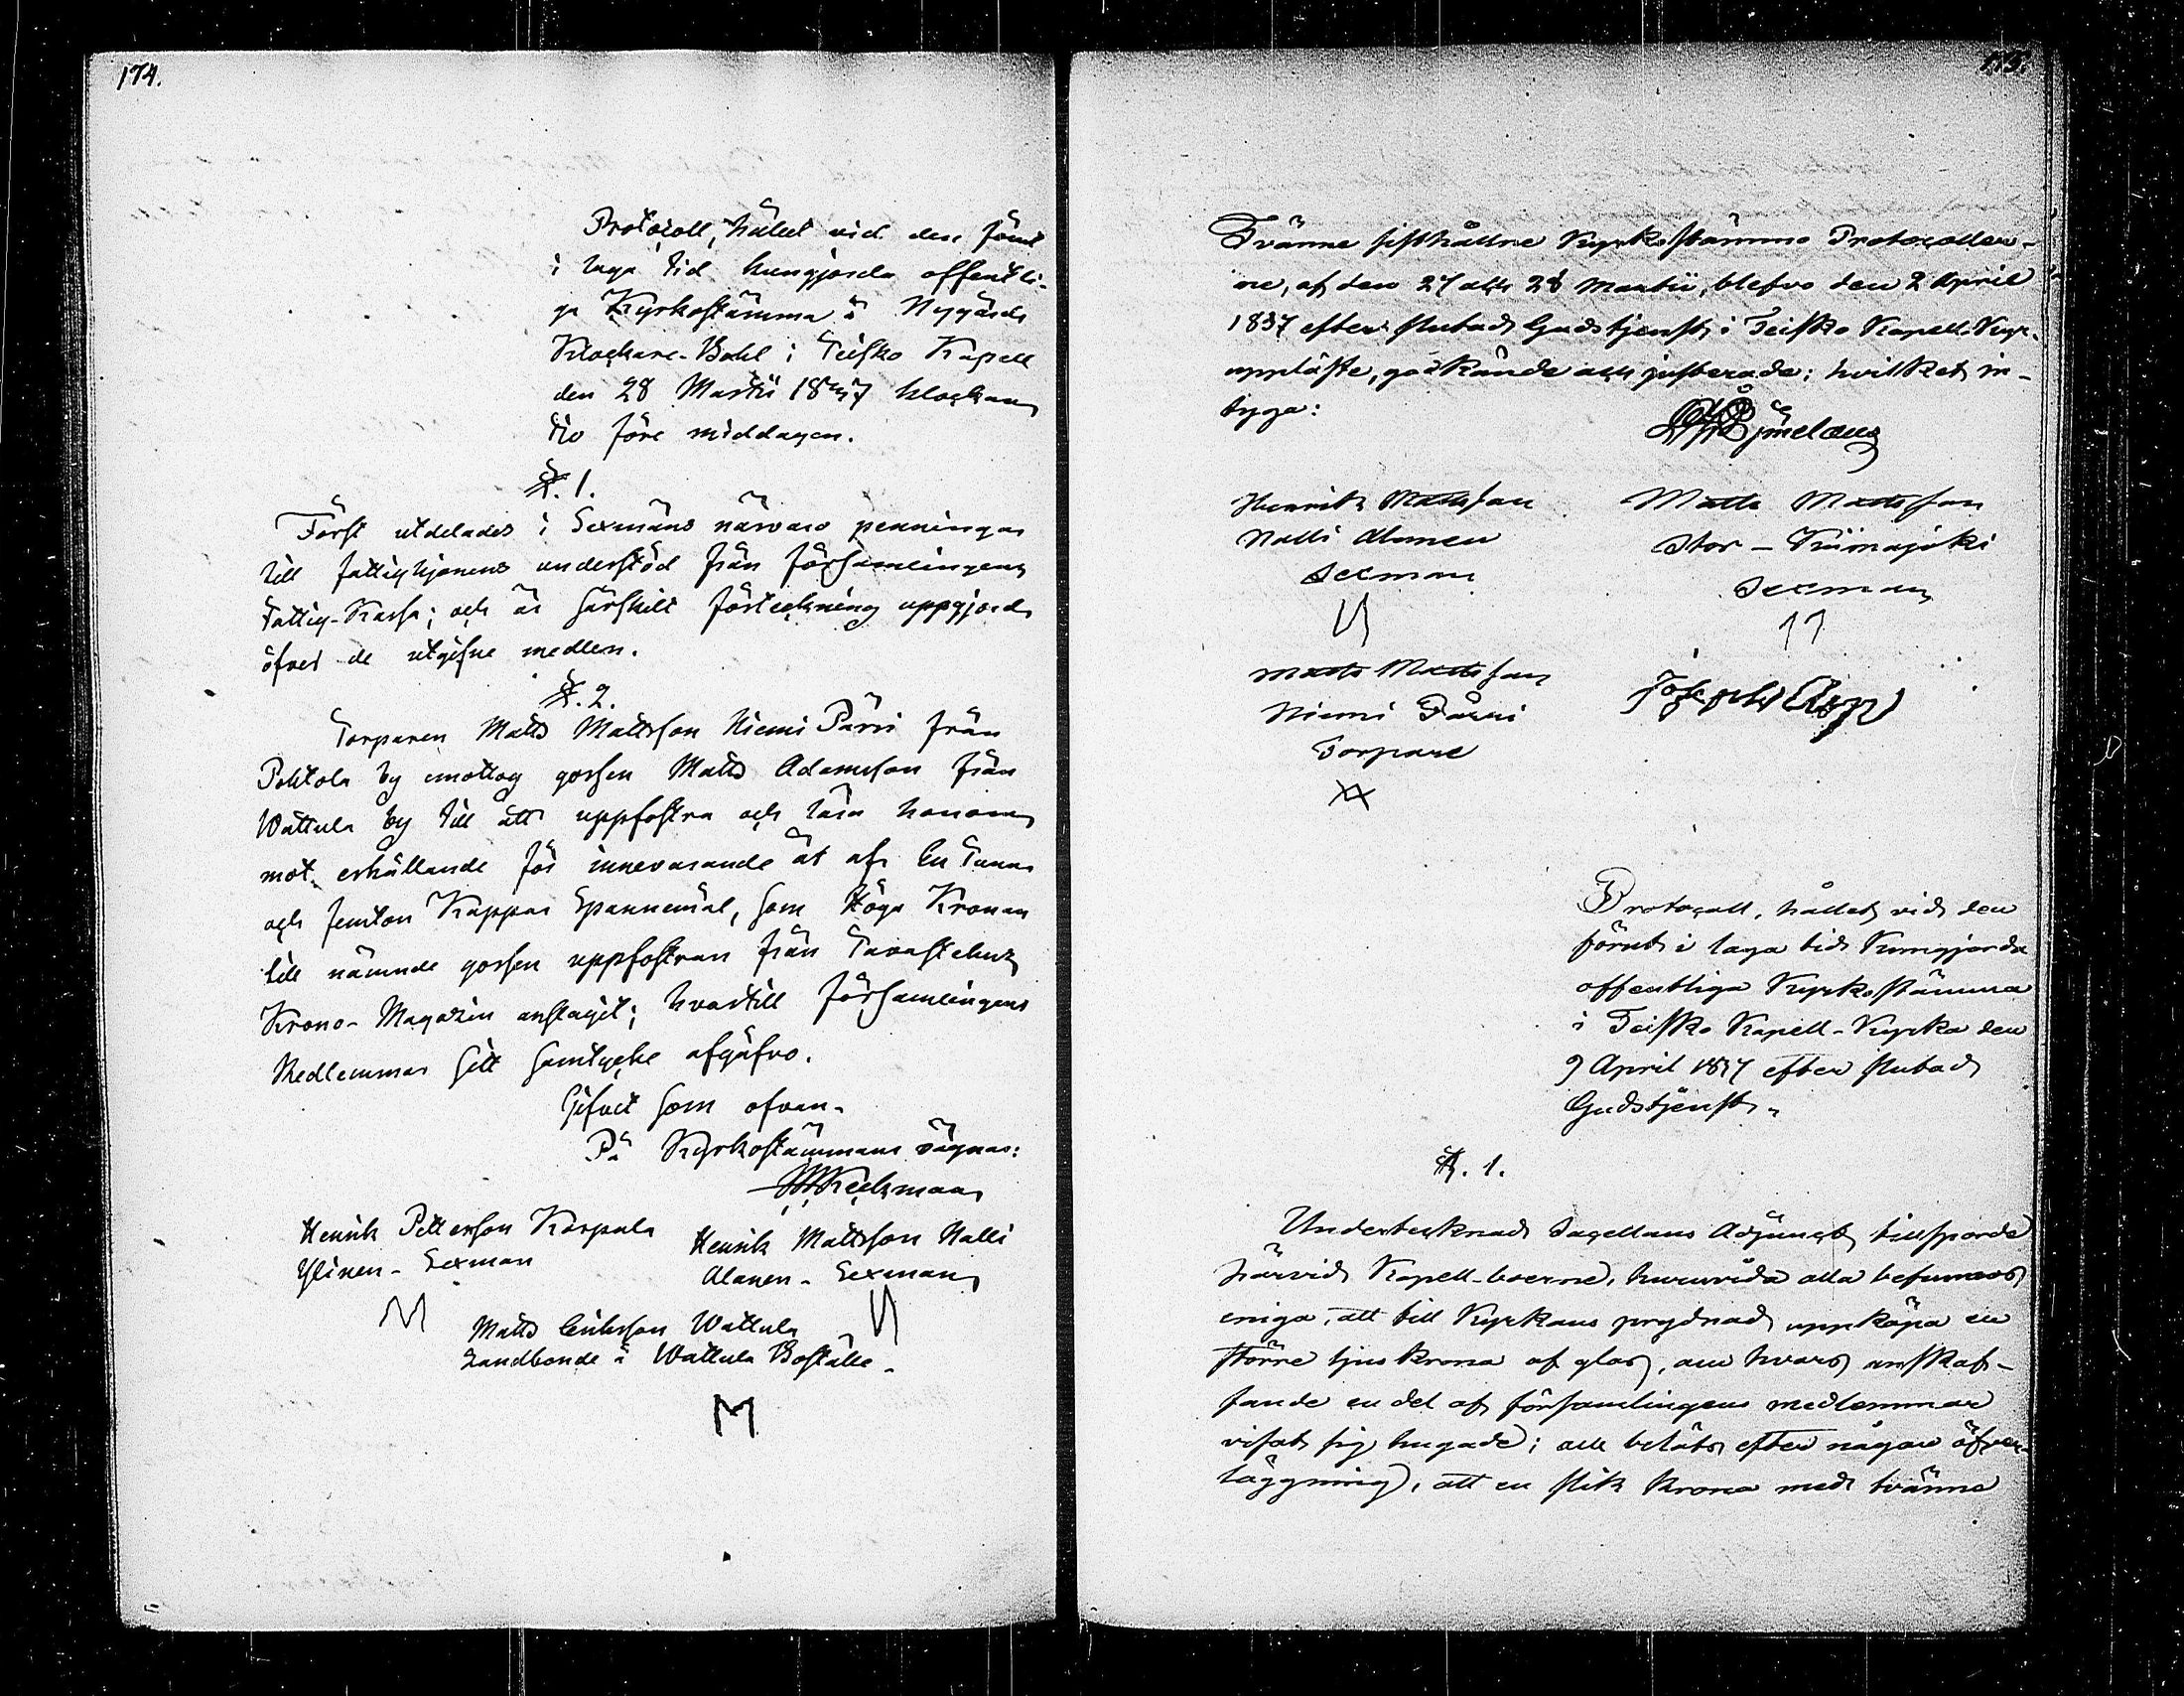 174.
Protocoll, hållet vid den förut
i laga tid kungjorda offentli-
ga Kyrkostämma å Nygårds
Klockare-Bohl i Teisko Kapell
den 28 Martii 1837 klockan
tio före middagen.
§. 1.
Först utdelades i Sexmäns närvaro penningar
till fattighjonens understöd från församlingens
Fattig-Kassa; och är särskilt förteckning uppgjord
öfver de utgifne medlen.
§. 2.
Torparen Matts Mattsson Niemi Pärri från
Pohtola by emottog gossen Matts Adamsson från
Wattula by till att uppfostra och lära honom
mot erhållande för innevarande år af En Tunna
och femton Kappar Spannemål, som Höga Kronan
till nämnde gossen uppfostran från Tavastehus
Krono-Magazin anslagit; hvartill församlingens
Medlemmar sitt samtycke afgåfvo.
Gifvet som ofvan.
På Kyrkostämmans vägnar:
Henrik Petterson Karpala
Ylinen - Sexman
Henrik Mattsson Nalli
Alanen - Sexman
Matts Eriksson Wattula
Landbonde å Wattula Boställe.
175.
Tvänne sisthållne Kyrkostämmo Protocoller-
ne, af den 27 och 28 Martii, blefvo den 2 April
1837 efter slutad Gudstjenst i Teisko Kapell-Kyr.
uppläste, godkände och justerade; hvilket in-
tyga:
Henrik Mattsson
Nalli Alanen
Sexman
Matts Mattsson
Stor-Kiimajoki
Sexman
Matts Mattsson
Niemi Pärri
Torpare
Joseph Asp
Protocoll, hållet vid den
förut i laga tid Kungjorda
offentliga Kyrkostämma
i Teisko Kapell-Kyrka den
9 April 1837 efter slutad
Gudstjenst.
§. 1.
Undertecknad Sacellans Adjunct tillsporde
härvid Kapell-boerne, huruvida alla befunnos
eniga, att till Kyrkans prydnad uppköpa en
större ljuskrona af glas, om hvars anskaf-
fande en del af församlingens medlemmar
visat sig hugade; och beslöts efter någon öfver-
läggning, att en slik Krona med tvänne